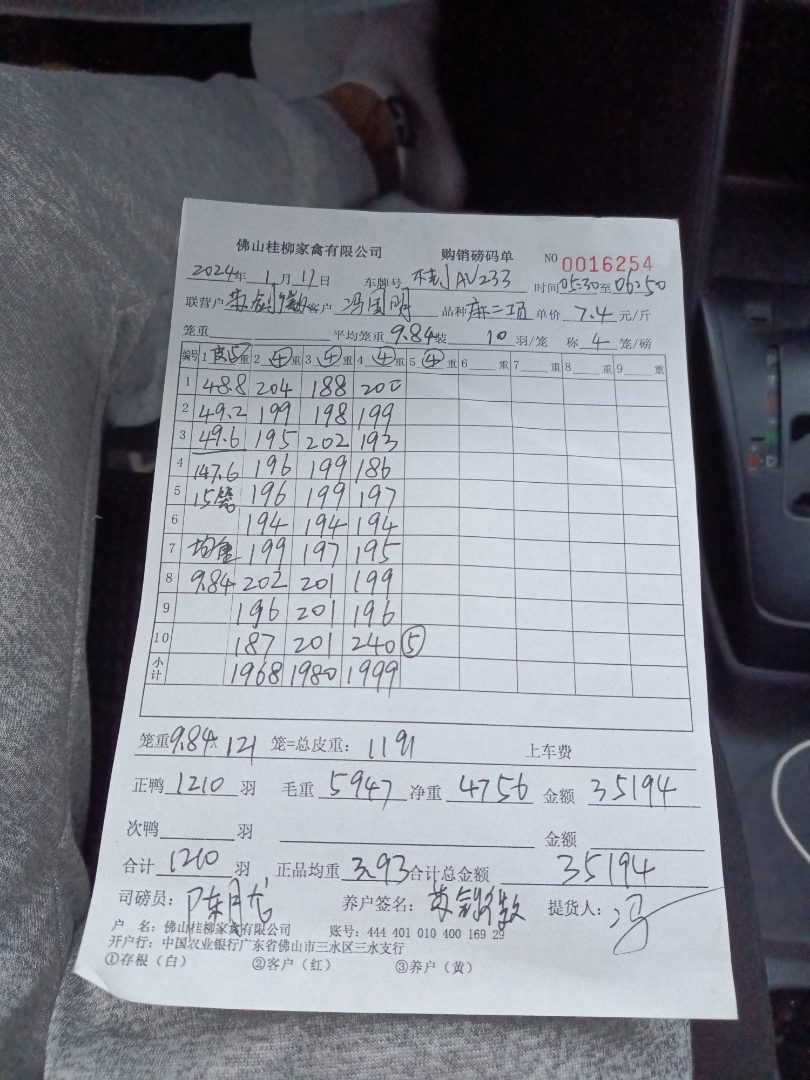 佛山桂柳家禽有限公司 购销磅码单 NO 0016254
2024年 1月 11日 车牌号 AV233 时间05:30至06:50
联营户 客户 冯国明 品种 麻二项 单价 7.4 元/斤
笼重 平均笼重 9.84 装 10 羽/笼 称 4 笼/磅
编号 1 ⑤重 2 ④重 3 ④重 4 ④重 5 ④重 6 重 7 重 8 重 9 重
1 48.8 204 188 200
2 49.2 199 198 199
3 49.6 195 202 193
4 147.6 196 199 186
5 15笼 196 199 197
6 194 194 194
7 均重 199 197 195
8 9.84 202 201 199
9 196 201 196
10 187 201 240 ⑤
小计 1968 1980 1999
笼重 9.84 x 121 笼=总皮重: 1191 上车费
正鸭 1210 羽 毛重 5947 净重 4756 金额 35194
次鸭 羽 金额
合计 1210 羽 正品均重 3.93 合计总金额 35194
司磅员: 养户签名: 提货人: 冯
户 名: 佛山桂柳家禽有限公司 账号: 444 401 010 400 169 29
开户行: 中国农业银行广东省佛山市三水区三水支行
①存根（白） ②客户（红） ③养户（黄）